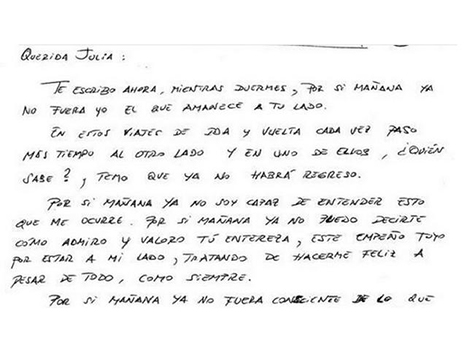 QUERIDA JULIA:
TE ESCRIBO AHORA, MIENTRAS DUERMES, POR SI MAÑANA YA
NO FUERA YO EL QUE AMANECE A TU LADO.
EN ESTOS VIAJES DE IDA Y VUELTA CADA VEZ PASO
MÁS TIEMPO AL OTRO LADO Y EN UNO DE ELLOS, ¿QUIÉN
SABE?, TEMO QUE YA NO HABRÁ REGRESO.
POR SI MAÑANA YA NO SOY CAPAZ DE ENTENDER ESTO
QUE ME OCURRE. POR SI MAÑANA YA NO PUEDO DECIRTE
CÓMO ADMIRO Y VALORO TÚ ENTEREZA, ESTE EMPEÑO TUYO
POR ESTAR A MI LADO, TRATANDO DE HACERME FELIZ A
PESAR DE TODO, COMO SIEMPRE.
POR SI MAÑANA YA NO FUERA CONSCIENTE DE LO QUE